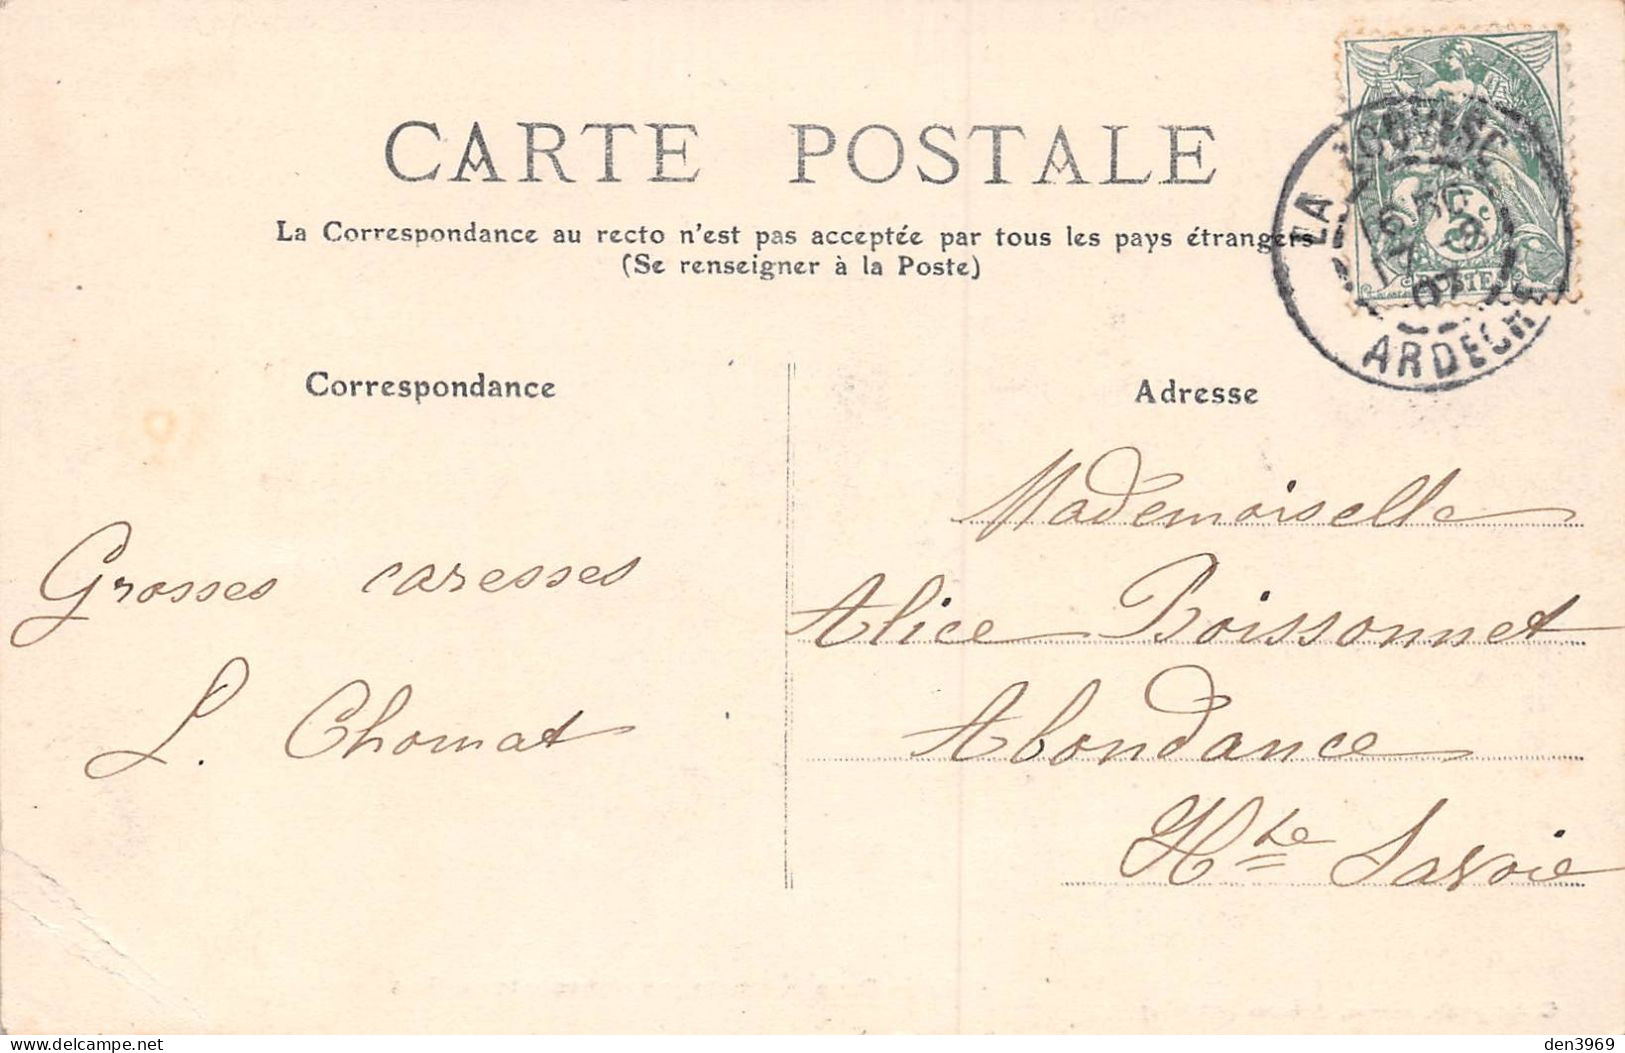 CARTE POSTALE
La Correspondance au recto n'est pas acceptée par tous les pays étrangers
(Se renseigner à la Poste)
LA LOUVESC
07
ARDECHE
5c
POSTES
Correspondance
Grosses caresses
L. Chomat
Adresse
Mademoiselle
Alice Boissonnet
Abondance
Hte Savoie
den3969